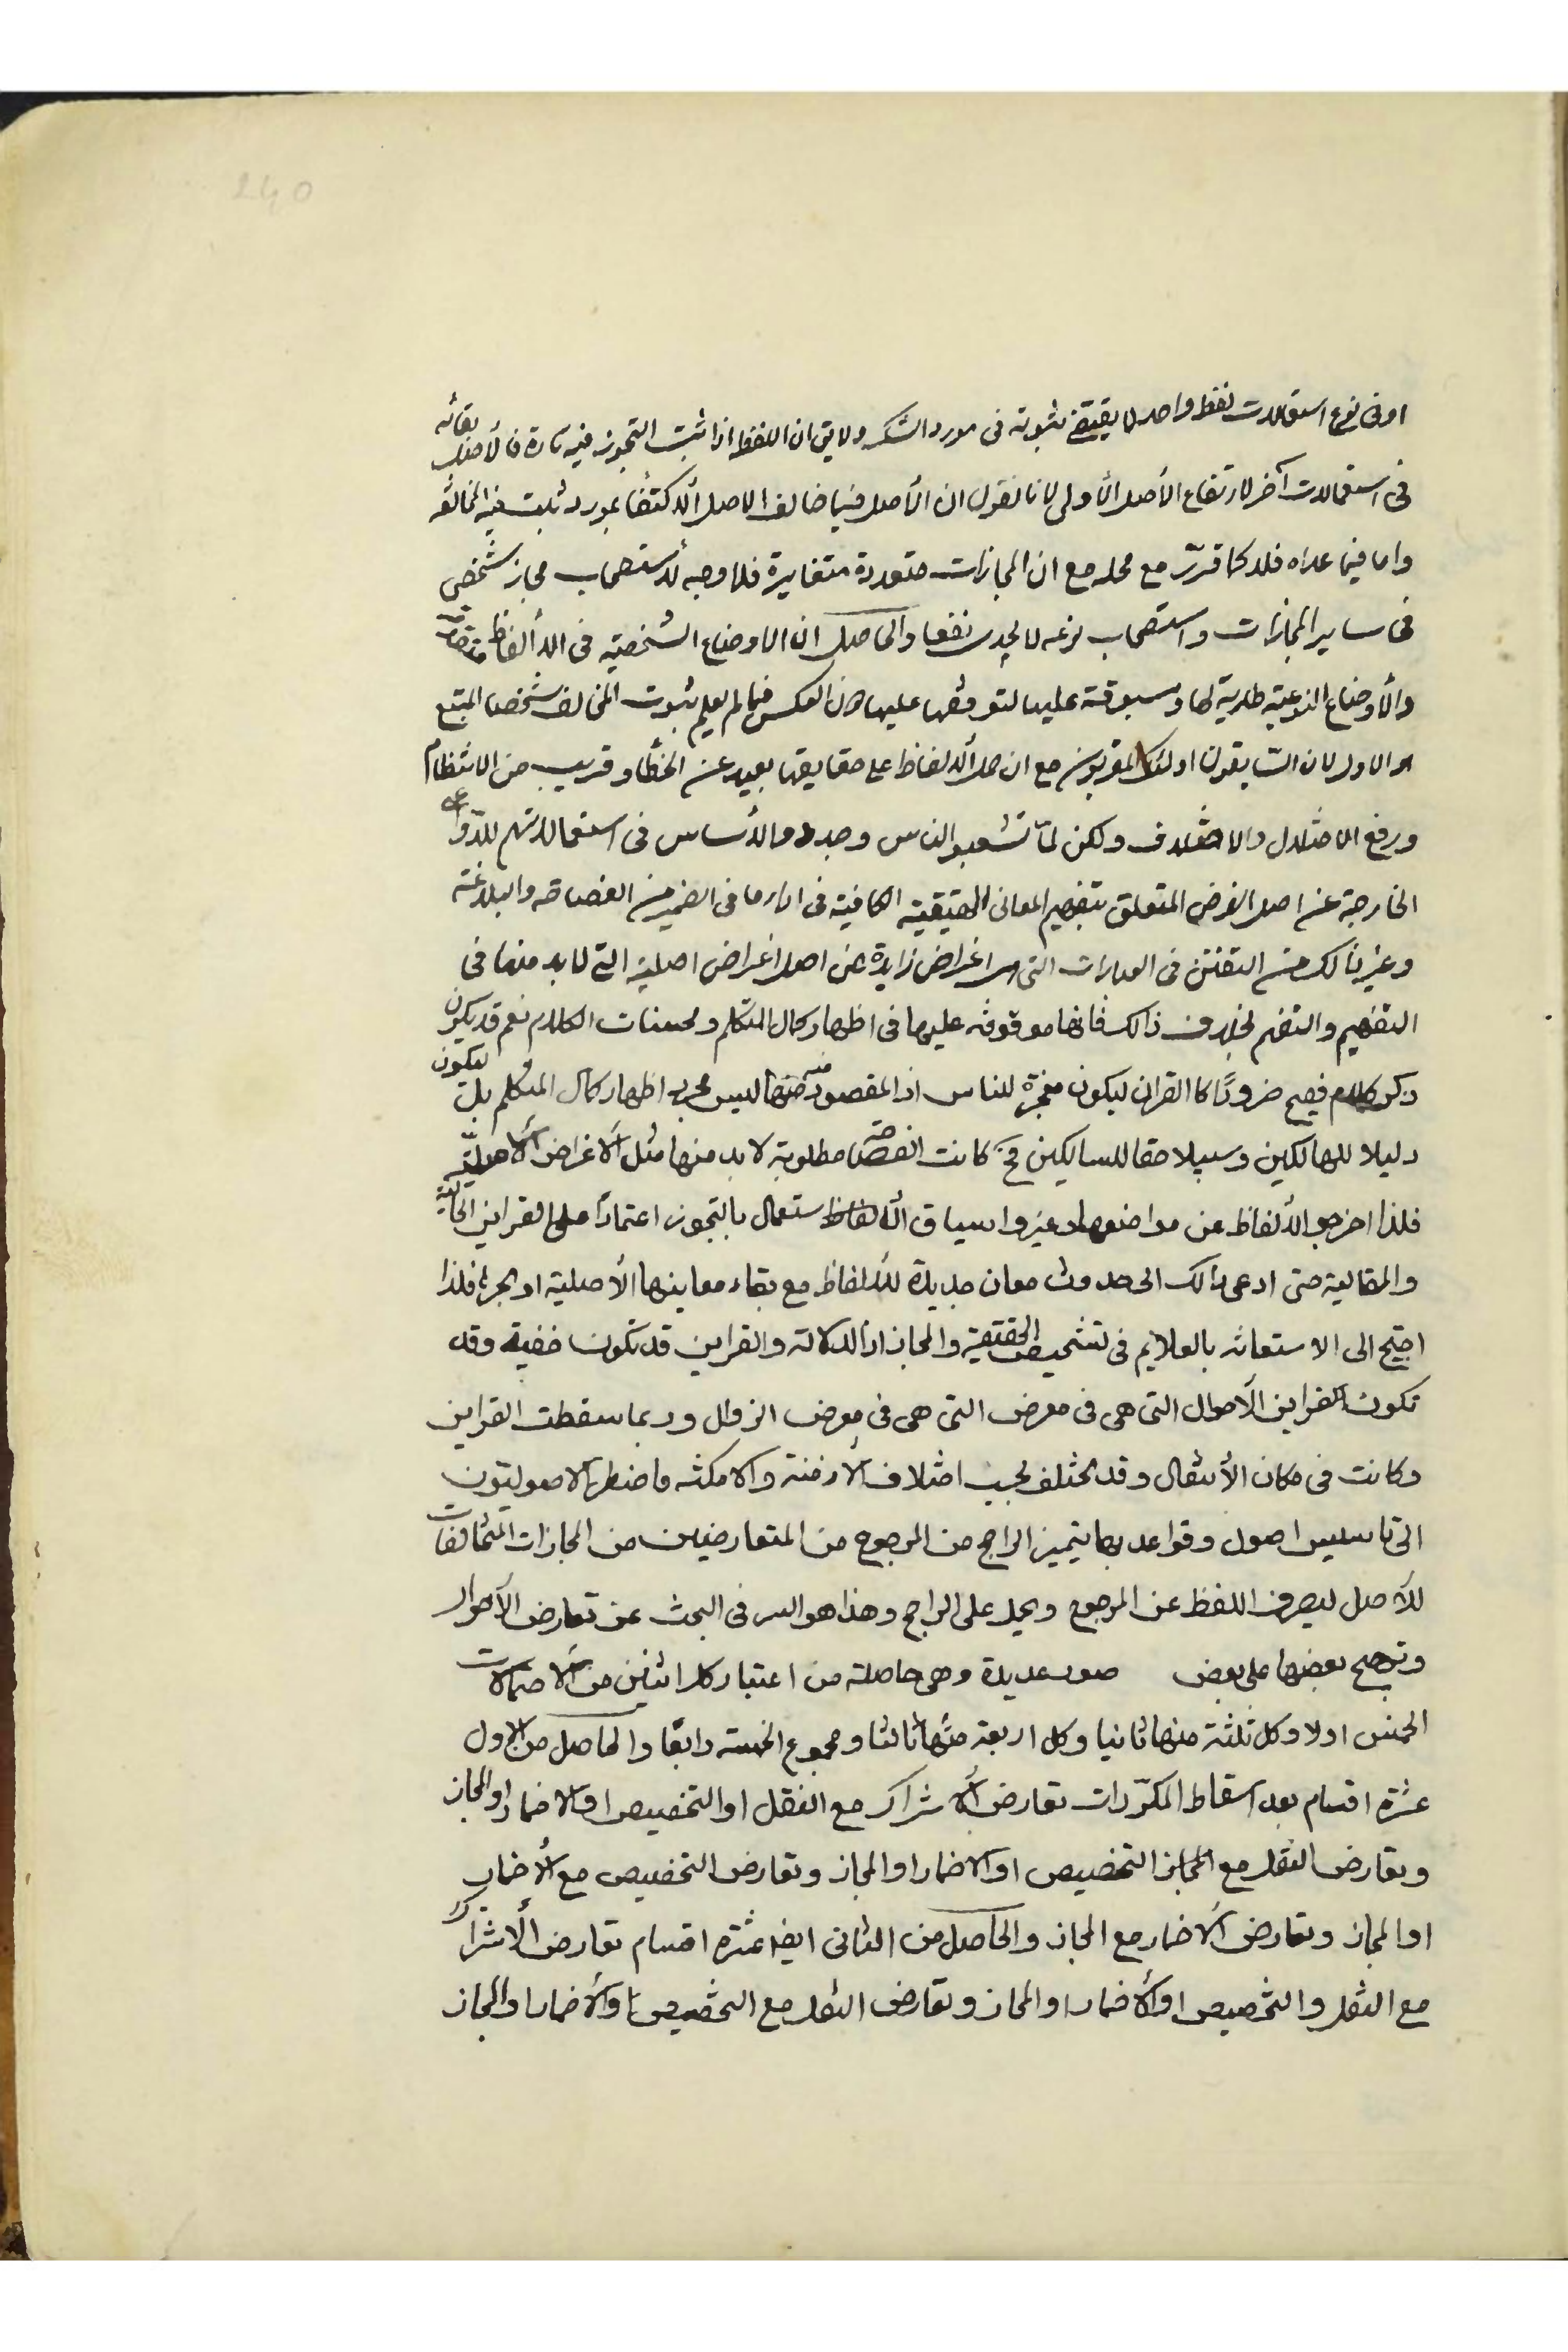 240
او فى نوع استعمالات لفظ واحد لا يقتضى ثبوته فى مورد الشك ولا يق ان اللفظ اذا ثبت التجوز فيه تارة فالأصل بقائه
فى استعمالات آخر لارتفاع الأصل الأولى لانا نقول ان الأصل فيما خالف الاصل الاكتفا بمورد ثبت فيه المخالفة
واما فيما عداه فلا كما قرّر مع محله مع ان المجازات متعددة متغايرة فلا وجه لاستصحاب مجاز شخصى
فى ساير المجازات واستصحاب نوعه لا يجدى نفعا والحاصل ان الاوضاع الشخصية فى الألفاظ متقدمة
والأوضاع النوعية طارية لها ومسبوقة عليها لتوقفها عليها دون العكس فما لم يعلم ثبوت المخالف شخصا المتبع
هو الاول لان السابقون اولئك المقربون مع ان حمل الالفاظ على حقايقها بعيد عن الخطأ وقريب من الانتظام
ورفع الاختلال والاختلاف ولكن لمّا تشعبو الناس وجددو الأساس فى استعمالاتهم للدواعى
الخارجة عن اصل الغرض المتعلق بتفهيم المعانى الحقيقية الكافية فى اداء ما فى الضمير من الفصاحة والبلاغة
وغير ذلك من التفنن فى العبارات التى هى اغراض زايدة عن اصل اغراض اصلية التى لا بد منها فى
التفهيم والتفهم بخلاف ذالك فانها موقوفة عليها فى اظهار كمال المتكلم ومحسنات الكلام نعم قد يكون
ذكر كلام فصيح ضروريًا كا القران ليكون معجزة للناس اذ المقصود منه ليس مجرد اظهار كمال المتكلم بل ليكون
دليلا للهالكين وسبيلا حقا للسالكين فح كانت الفصاحة مطلوبة لا بد منها مثل الاغراض الأصلية
فلذا اخرجو الألفاظ عن مواضعها وغيروا سياق الالفاظ ستعمال بالتجوز اعتمادًا على القراين الحالية
والمقالية حتى ادعى ذالك الى حدوث معان جديدة للالفاظ مع بقاء معاينها الأصلية او هجرها فلذا
احتيج الى الاستعانه بالعلايم فى تشخيص الحقيقية والمجاز اذ الدلالة والقراين قد تكون خفية وقد
تكون القراين الأحوال التى هى فى معرض التى هى فى معرض الزوال وربما سقطت القراين
وكانت فى مكان الأنتقال وقد تختلف بحسب اختلاف الأزمنة والامكنه فاضطر الاصوليون
الى تاسيس اصول وقواعد بها يتميز الراجح من المرجوح من المتعارضين من المجازات المخالفات
للأصل ليصرف اللفظ عن المرجوح ويحمل على الراجح وهذا هو السر فى البحث عن تعارض الأحوال
وترجيح بعضها على بعض صور عديدة وهى حاصلة من اعتبار كل اثنين من الاحتمالات
الخمس اولا وكل ثلثة منها ثانيا وكل اربعة منها ثالثا ومجموع الخمسة رابعًا والحاصل من الاول
عشرة اقسام بعد اسقاط المكرّرات تعارض الأشراك مع النقل او التخصيص او الاضمار او المجاز
وتعارض النقل مع التخصيص او الاضمار او المجاز وتعارض التخصيص مع الأضمار
او المجاز وتعارض الاضمار مع المجاز والحاصل من الثانى ايضا عشرة اقسام تعارض الأشراك
مع النقل والتخصيص او الأضمار او المجاز وتعارض النقل مع التخصيص او الأضمار او المجاز